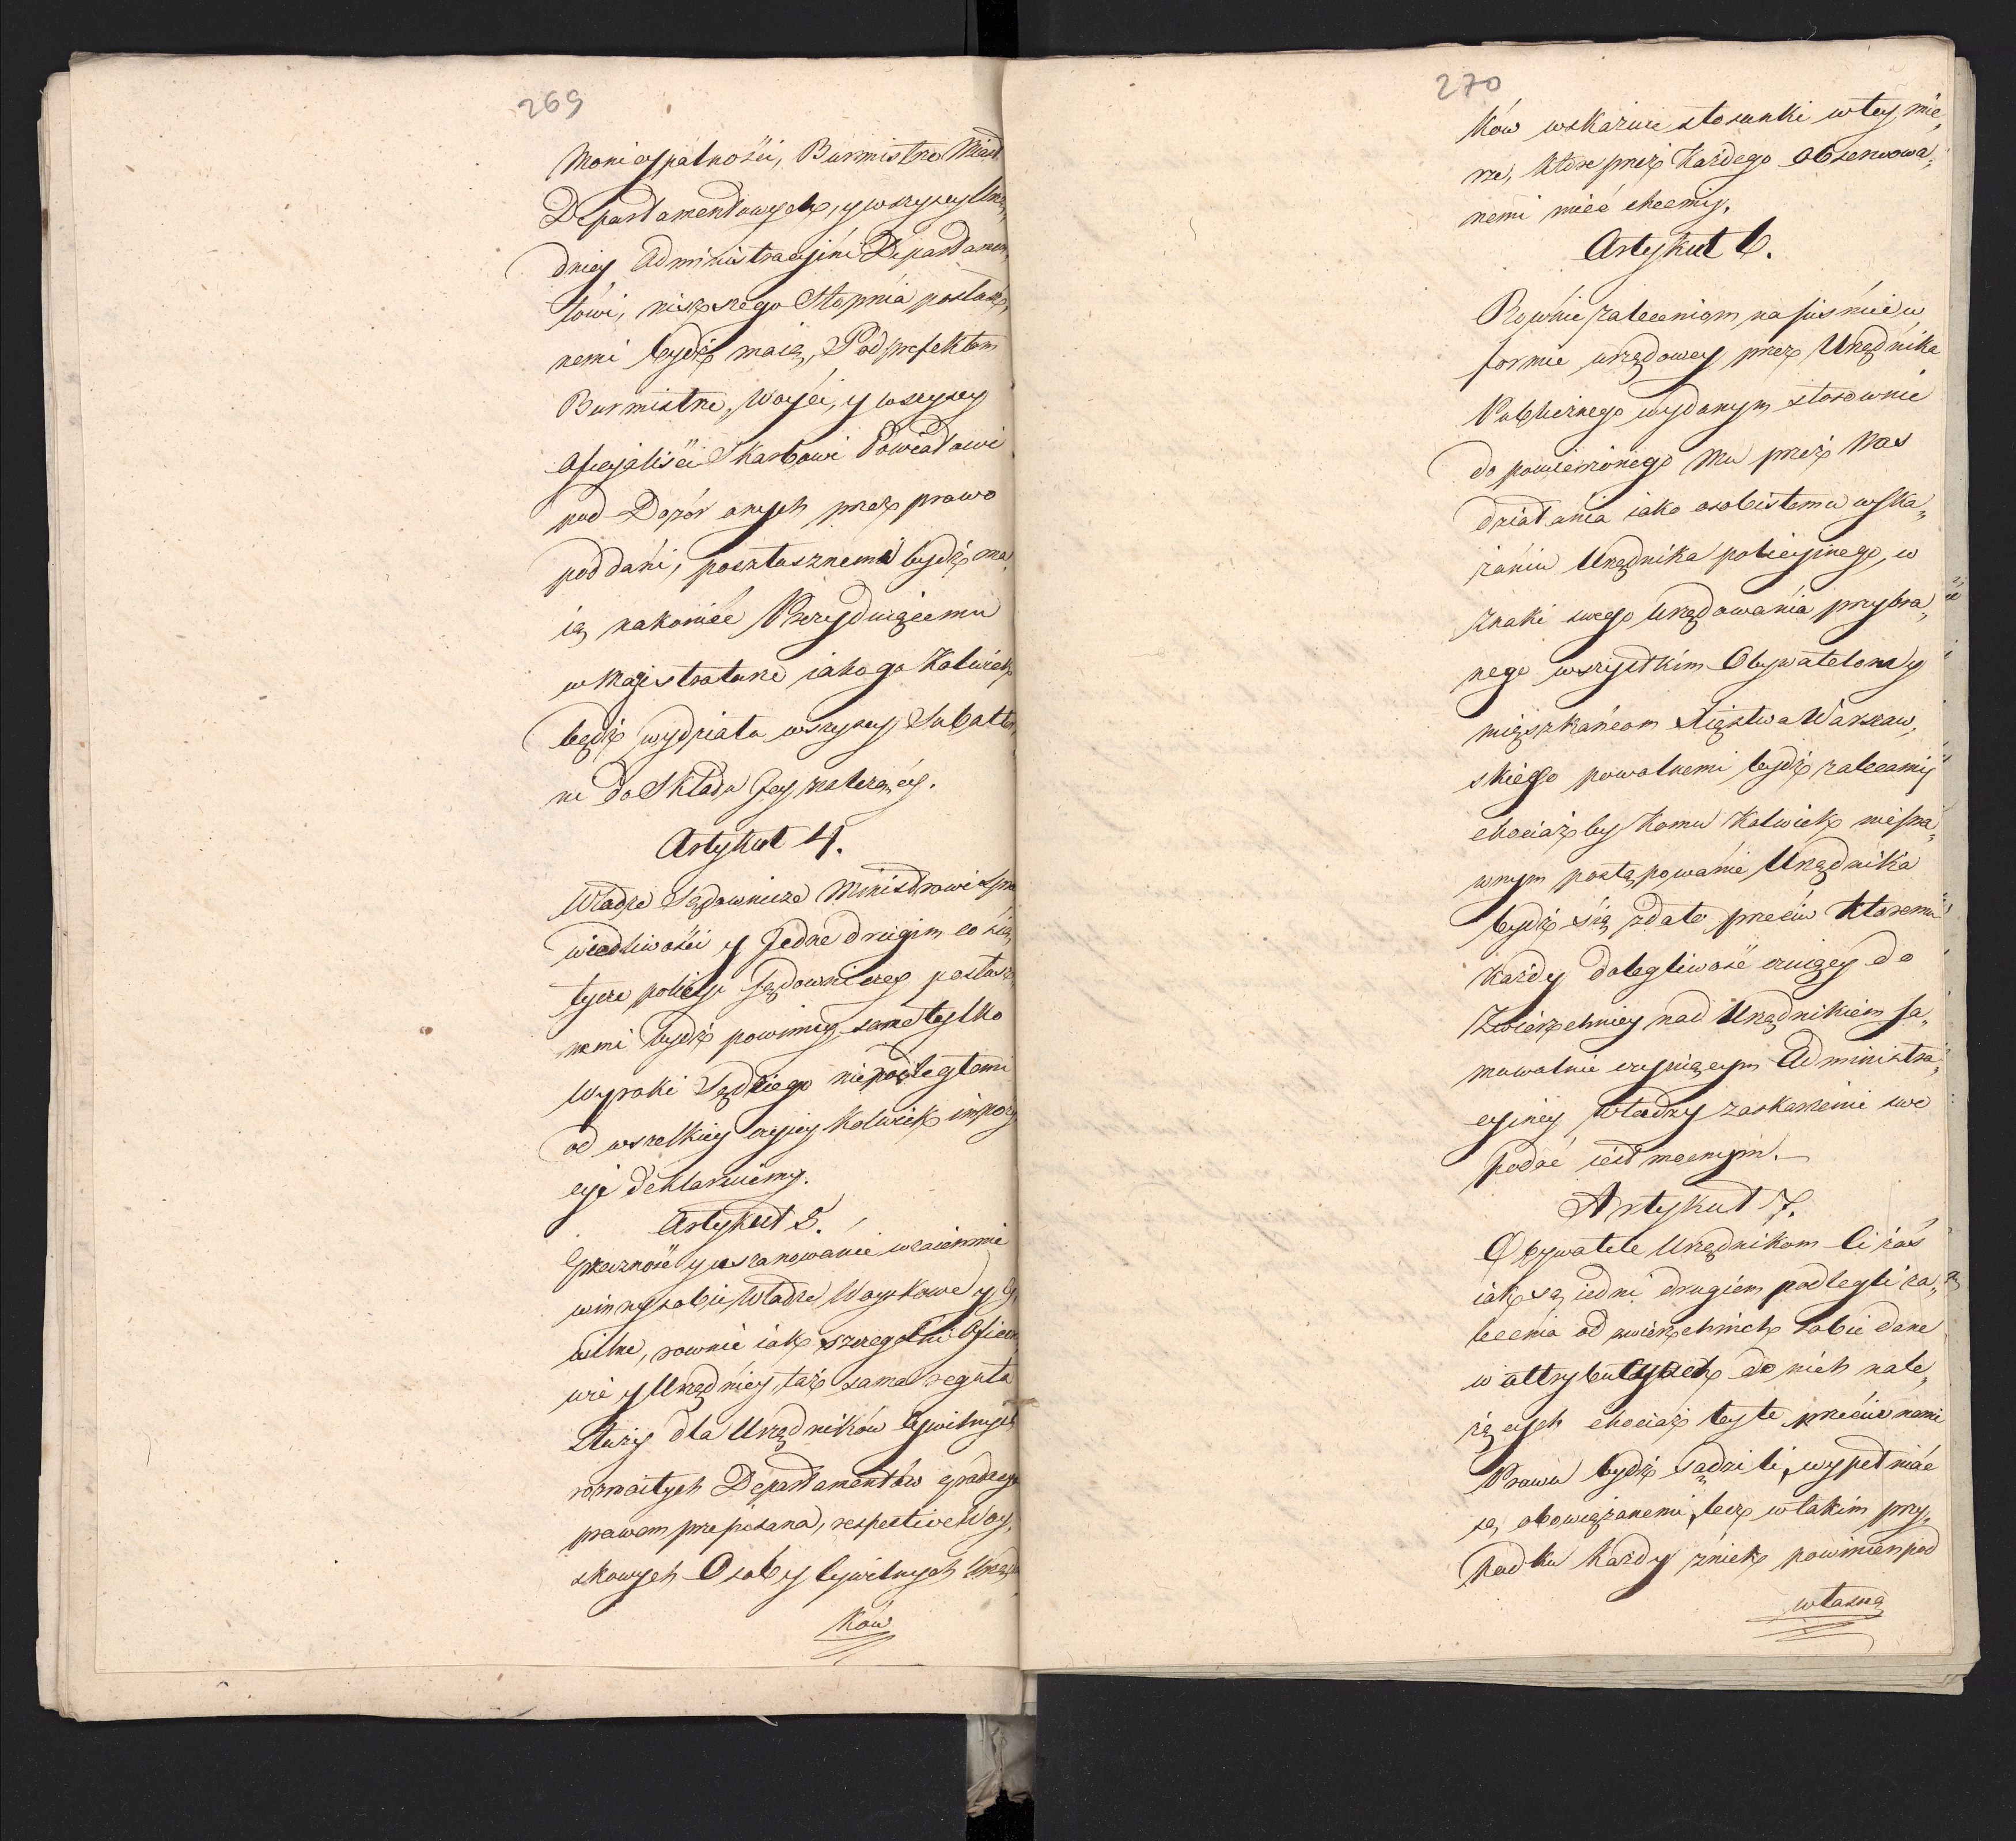 269
Municypalności, Burmistrze Miast
Departamentowych, y wszyscy Urzę„
dnicy Administracyjni Departamen„
towi, niższego Stopnia posłusz„
nemi bydź maią, Podprefektom
Burmistrze, Woyci, y wszyscy
Oficyaliści Skarbowi Powiatowi
pod Dozór onych przez prawo
poddani, posłusznemi bydź ma„
ią nakoniec Prezyduiącemu
w Magistraturze iakego Kolwiek
bądź wydziału wszyscy Subalter„
ni do Składu Jey należący.
Artykuł 4.
Władze Sądownicze Ministrowi Spra
wiedliwości y Jedne drugim co się
tycze policyi Sądowniczey posłusz„
nemi bydź powinny, same tylko
Wyroki Sędziego niepodległemi
od wszelkiey czyiey Kolwiek inspek
cyi deklaruiemy.
Artykuł 5.
Grzeczność y uszanowanie wzaiemnie
winny sobie Władze Woyskowe y Cy„
wilne, rownie iak szczególni Oficero„
wie y Urzędnicy, taż sama reguła
służy dla Urzędników Cywilnych
rozmaitych Departamentów
prawem przepisana, respective Woy„
skowych Osob y Cywilnych Urzędni
ków
270
ków wskazuie stosunki w tey mie„
rze, ktore przez Każdego obserwowa„
nemi mieć chcemy.
Artykuł 6.
Rownie zaleceniom na piśmie w
formie urzędowey przez Urzędnika
Publicznego wydanym stosownie
do powierzonego Mu przez Nas
działania iako osobistemu wska„
zaniu Urzędnika policyinego, w
znaki swego Urzędowania przybra„
nego wszystkim Obywatelom y
mięszkańcom Xięstwa Warszaw„
skiego powolnemi bydź zalecamy
chociażby Komu Kolwiek niepra„
wnym postąpowanie Urzędnika
bydź się zdało przeciw Ktoremu
Każdy dolegliwość czuiący do
Zwierzchniey nad Urzędnikiem sa„
mowolnie czyniącym Administra„
cyiney Władzy zaskarżenie swe
podać iest mocnym.
Artykuł 7.
Obywatele Urzędnikom Ci zaś
iak są iedni drugiem podlegli za„
lecenia od zwierzchnich sobie dane
w attrybucyach do nich nale„
żących chociaż by te przeciwnemi
Prawu bydź sądzili, wypełniać
są obowiązanemi, lecz w takim przy„
padku Każdy z nich powinien pod
własną